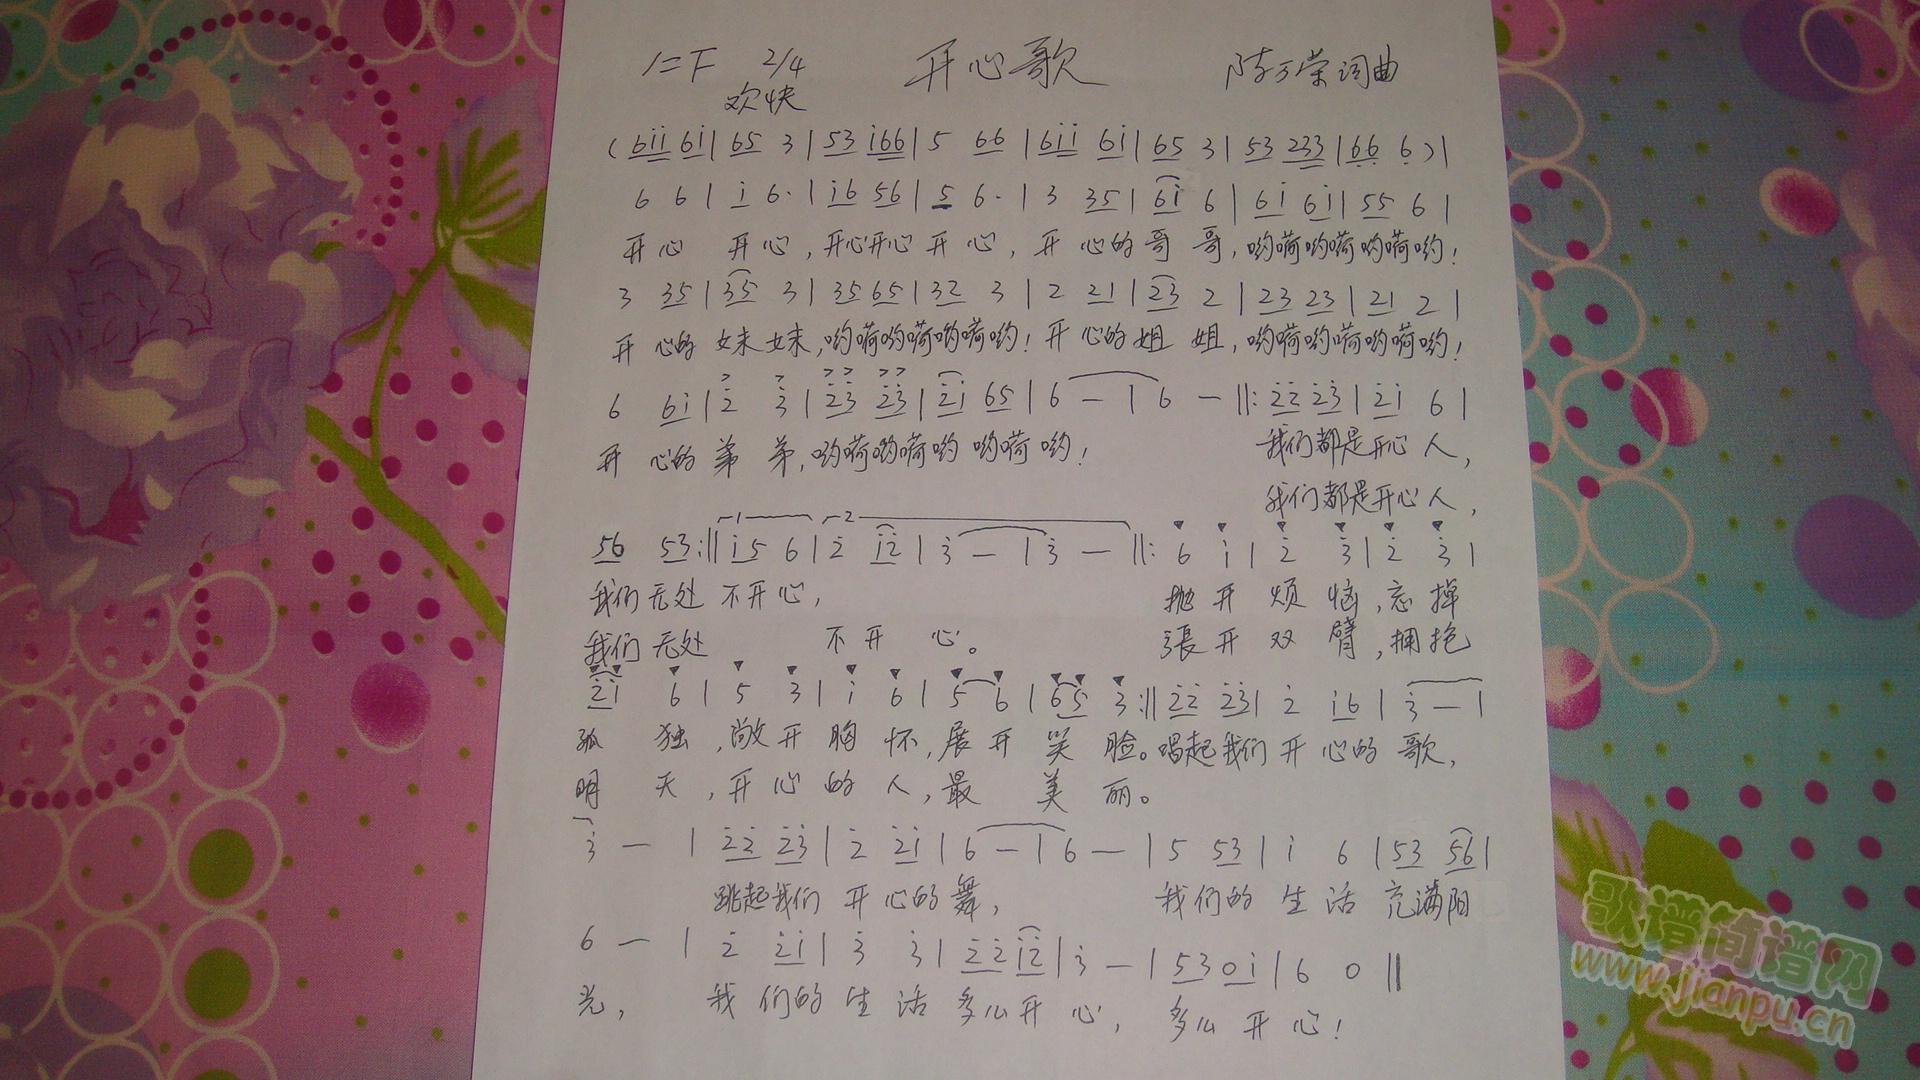 1=F 2/4 开心歌 陈万荣词曲
欢快
(6i̇i̇ 6i̇|65 3|53 i̇66|5 66|6i̇i̇ 6i̇|65 3|53 233|6̣6̣ 6̣)|
6 6|i̇ 6·|i̇6 56|5 6·|3 35|6i̇ 6|6i̇ 6i̇|55 6|
开心 开心,开心开心开心,开心的哥哥,哟嗬哟嗬哟嗬哟!
3 35|35 3|35 65|32 3|2 21|23 2|23 23|21 2|
开心的妹妹,哟嗬哟嗬哟嗬哟!开心的姐姐,哟嗬哟嗬哟嗬哟!
6 6i̇|2̇ 3̇|2̇3̇ 2̇3̇|2̇i̇ 65|6 —|6 —‖:2̇2̇ 2̇3̇|2̇i̇ 6|
开心的弟弟,哟嗬哟嗬哟哟嗬哟! 我们都是开心人,
我们都是开心人,
56 53:‖1 i̇5 6|2 2̇ i̇2̇|3̇ —|3̇ —‖:6 i̇|2̇ 3̇|2̇ 3̇|
我们无处不开心, 抛开烦恼,忘掉
我们无处 不开心。 張开双臂,拥抱
2̇i̇ 6|5 3|i̇ 6|5 6|65 3:‖2̇2̇ 2̇3̇|2̇ i̇6|3̇ —|
孤独,敞开胸怀,展开笑脸。唱起我们开心的歌,
明天,开心的人,最美丽。
3̇ —|2̇2̇ 2̇3̇|2̇ 2̇i̇|6 —|6 —|5 53|i̇ 6|53 56|
跳起我们开心的舞, 我们的生活充满阳
6 —|2̇ 2̇i̇|3̇ 3̇|2̇2̇ i̇2̇|3̇ —|53 0i̇|6 0‖
光, 我们的生活多么开心, 多么开心!
歌谱简谱网
www.jianpu.cn